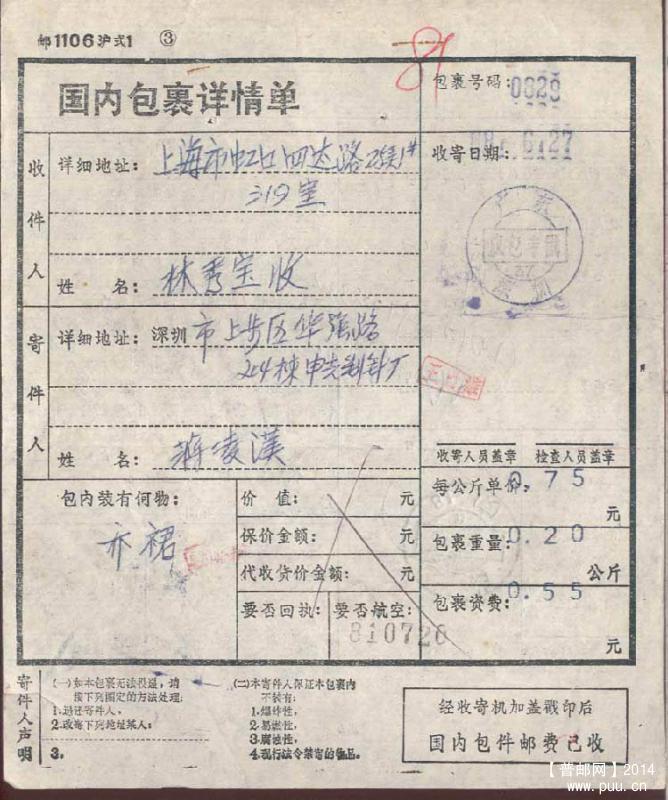 邮1106沪式1 ③
国内包裹详情单
包裹号码:0829
收寄日期:
收件人
详细地址:上海市虹口四达路
319室
姓名:林秀宝收
寄件人
详细地址:深圳市上步区华强路
204栋
姓名:蒋凌漢
收寄人员盖章 检查人员盖章
每公斤单价:0.75元
包裹重量:0.20公斤
包裹资费:0.55元
包内装有何物:
价值:元
保价金额:元
代收货价金额:元
要否回执: 要否航空:
810726
寄件人声明
(一)如本包裹无法投递,请
按下列圈定的方法处理:
1.退还寄件人,
2.改寄下列地址某人:
3.
(二)本寄件人保证本包裹内
不装有:
1.爆炸性,
2.易燃性,
3.腐蚀性,
4.现行法令禁寄的物品.
经收寄机加盖戳印后
国内包件邮费已收
【普邮网】2014
www.puu.cn